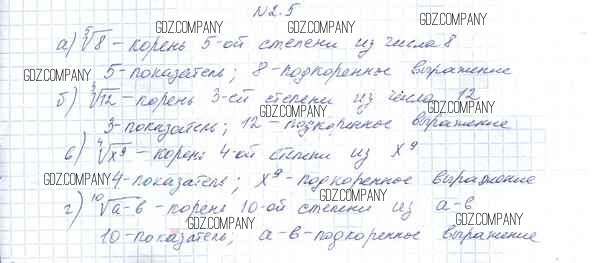 №2.5
а) ⁵√8 - корень 5-ой степени из числа 8
5-показатель; 8-подкоренное выражение
б) ³√12 - корень 3-ей степени из числа 12
3-показатель; 12 - подкоренное выражение
в) ⁴√x⁹ - корень 4-ой степени из x⁹
4-показатель; x⁹-подкоренное выражение
г) ¹⁰√a-в - корень 10-ой степени из a-в
10-показатель; a-в-подкоренное выражение
GDZ.COMPANY
GDZ.COMPANY
GDZ.COMPANY
GDZ.COMPANY
GDZ.COMPANY
GDZ.COMPANY
GDZ.COMPANY
GDZ.COMPANY
GDZ.COMPANY
GDZ.COMPANY
GDZ.COMPANY
GDZ.COMPANY